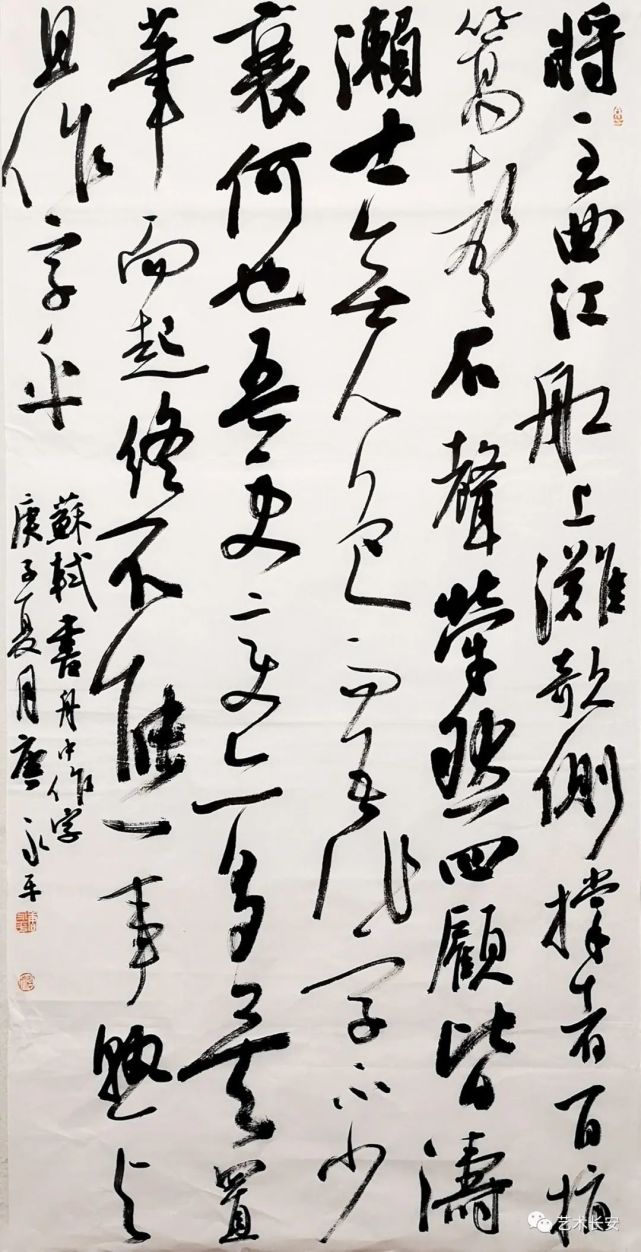 將至曲江舩上灘欹側撐者百指
篙聲石聲犖然四顧皆濤
瀨士無人色而吾作字不少
衰何也吾更變亦多矣置
筆而起終不能一事孰與
且作字乎
蘇軾書舟中作字
庚子夏月唐永平
艺术长安